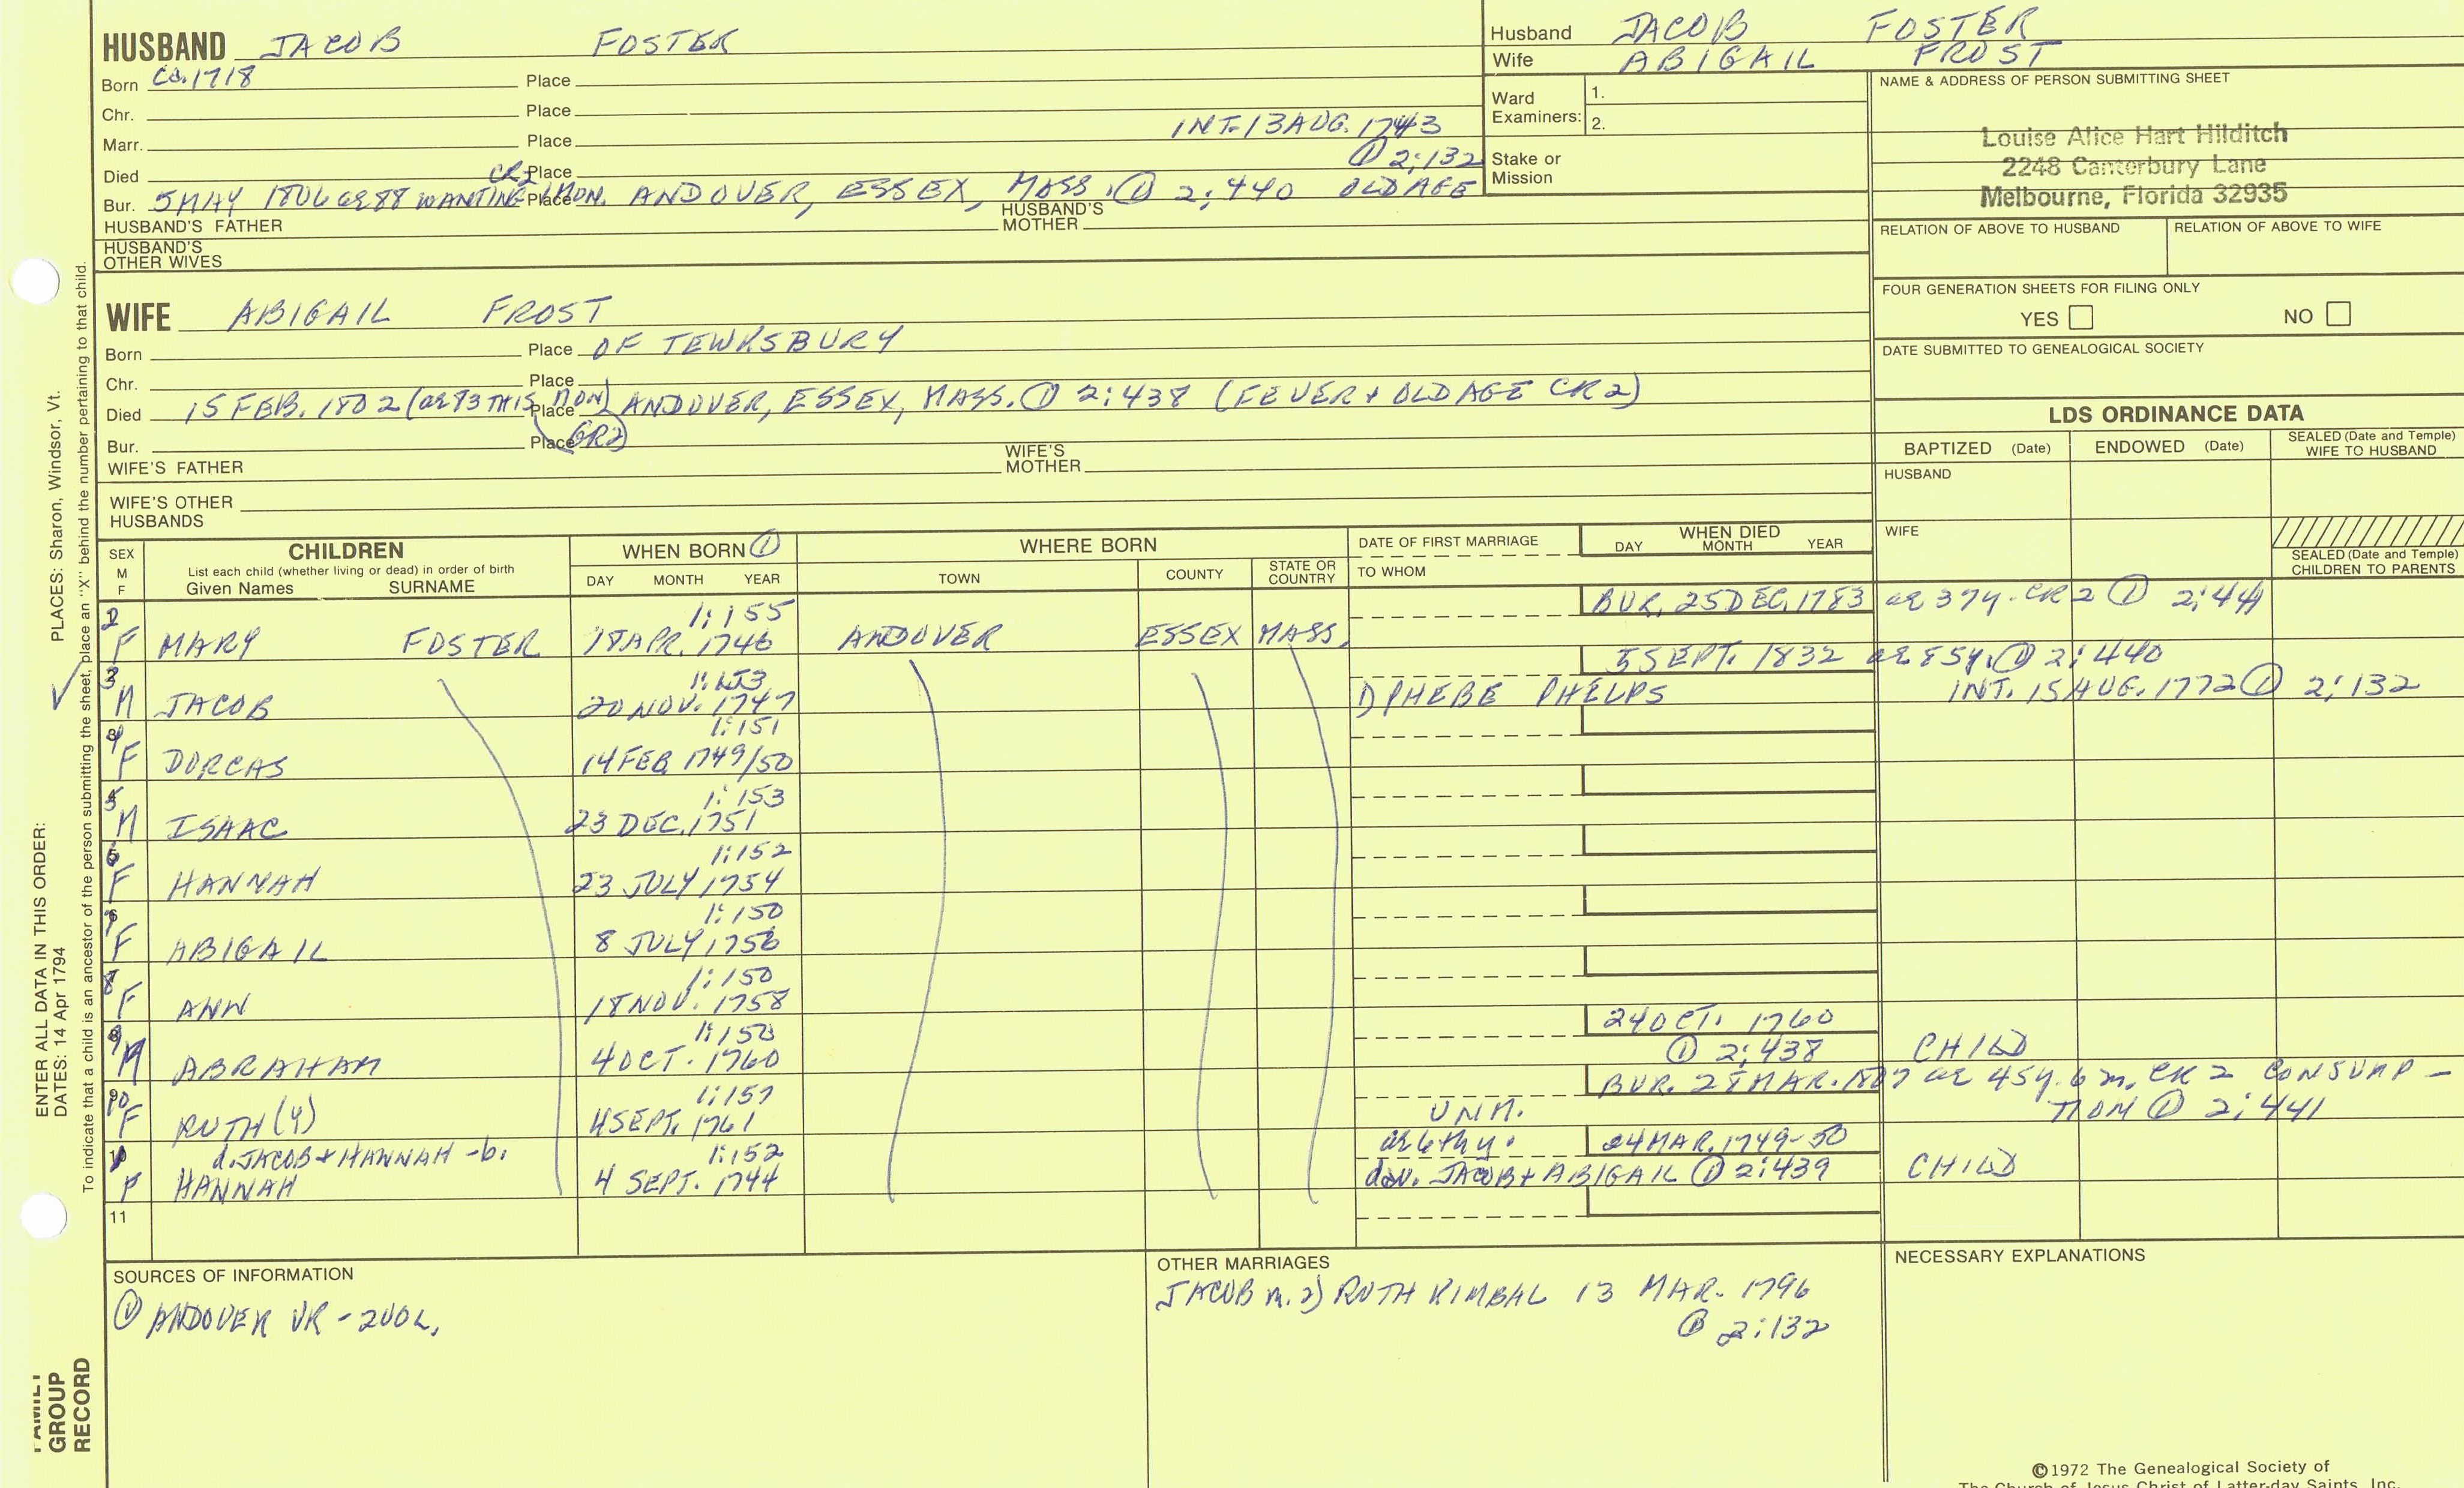 HUSBAND JACOB FOSTER
Born Ca. 1718 Place
Chr. Place
Marr. Place INT. 13 AUG. 1743
① 2:132
Died Place
CR2
Bur. 5 MAY 1806 ae 88 WANTING 1 MON. Place ANDOVER, ESSEX, MASS. ① 2:440 OLD AGE
HUSBAND'S FATHER HUSBAND'S MOTHER
HUSBAND'S OTHER WIVES
WIFE ABIGAIL FROST
Born Place OF TEWKSBURY
Chr. Place
Died 15 FEB. 1802 (ae 83 THIS MON) Place ANDOVER, ESSEX, MASS. ① 2:438 (FEVER + OLD AGE CR2)
Bur. Place GR2)
WIFE'S FATHER WIFE'S MOTHER
WIFE'S OTHER HUSBANDS
Husband JACOB FOSTER
Wife ABIGAIL FROST
Ward Examiners: 1.
2.
Stake or Mission
NAME & ADDRESS OF PERSON SUBMITTING SHEET
Louise Alice Hart Hilditch
2248 Canterbury Lane
Melbourne, Florida 32935
RELATION OF ABOVE TO HUSBAND RELATION OF ABOVE TO WIFE
FOUR GENERATION SHEETS FOR FILING ONLY
YES NO
DATE SUBMITTED TO GENEALOGICAL SOCIETY
LDS ORDINANCE DATA
BAPTIZED (Date) ENDOWED (Date) SEALED (Date and Temple) WIFE TO HUSBAND
HUSBAND
WIFE
SEALED (Date and Temple) CHILDREN TO PARENTS
SEX M F
CHILDREN
List each child (whether living or dead) in order of birth
Given Names SURNAME
WHEN BORN ①
DAY MONTH YEAR
WHERE BORN
TOWN COUNTY STATE OR COUNTRY
DATE OF FIRST MARRIAGE
TO WHOM
WHEN DIED
DAY MONTH YEAR
2 1:155 BUR. 25 DEC. 1783 ae 37y. CR2 ① 2:441
F MARY FOSTER 18 APR. 1746 ANDOVER ESSEX MASS.
3 1:153 5 SEPT. 1832 ae 85y. ① 2:440
M JACOB 20 NOV. 1747 1) PHEBE PHELPS INT. 15 AUG. 1772 ① 2:132
4 1:151
F DORCAS 14 FEB 1749/50
5 1:153
M ISAAC 23 DEC. 1751
6 1:152
F HANNAH 23 JULY 1754
7 1:150
F ABIGAIL 8 JULY 1756
8 1:150
F ANN 18 NOV. 1758
9 1:150 24 OCT. 1760
M ABRAHAM 4 OCT. 1760 ① 2:438 CHILD
10 1:157 BUR. 28 MAR. 1807 ae 45y. 6 m. CR2 CONSUMP-
F RUTH (4) 4 SEPT. 1761 UNM. TION ① 2:441
1 d. JACOB + HANNAH -b. 1:152 ae 6th y. 24 MAR. 1749-50
F HANNAH 4 SEPT. 1744 dau. JACOB + ABIGAIL ① 2:439 CHILD
11
SOURCES OF INFORMATION
① ANDOVER VR - 2 VOL.
OTHER MARRIAGES
JACOB m. 2) RUTH KIMBAL 13 MAR. 1796
① 2:132
NECESSARY EXPLANATIONS
©1972 The Genealogical Society of
The Church of Jesus Christ of Latter-day Saints, Inc.
PLACES: Sharon, Windsor, Vt.
To indicate that a child is an ancestor of the person submitting the sheet, place an "X" behind the number pertaining to that child.
ENTER ALL DATA IN THIS ORDER:
DATES: 14 Apr 1794
FAMILY
GROUP
RECORD